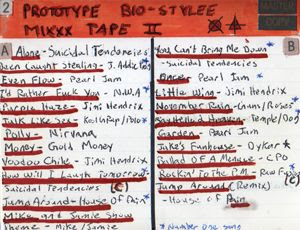 2
PROTOTYPE BIO-STYLEE
MIXXX TAPE II
MASTER
COPY
A
Alone - Suicidal Tendencies
Been Caught Stealing - J. Addic
Even Flow - Pearl Jam
I'd Rather Fuck You - N.W.A
Purple Haze - Jimi Hendrix
Talk Like Sex
Polly - Nirvana
Money - Gold Money
Voodoo Chile - Jimi Hendrix
How Will I Laugh Tomorrow
Suicidal Tendencies (C)
Jump Around - House Of Pain
Mike and Samie Show
Theme - Mike/Samie
B
You Can't Bring Me Down
- Suicidal Tendencies
Once - Pearl Jam
Little Wing - Jimi Hendrix
November Rain - Guns/Roses
Garden - Pearl Jam
Jake's Funhouse - Dyker
Ballad Of A Menace - CPO
Rockin' To The P.M. - Raw Fus
Jump Around (Remix)
(C) - House of Pain
* Number One Song